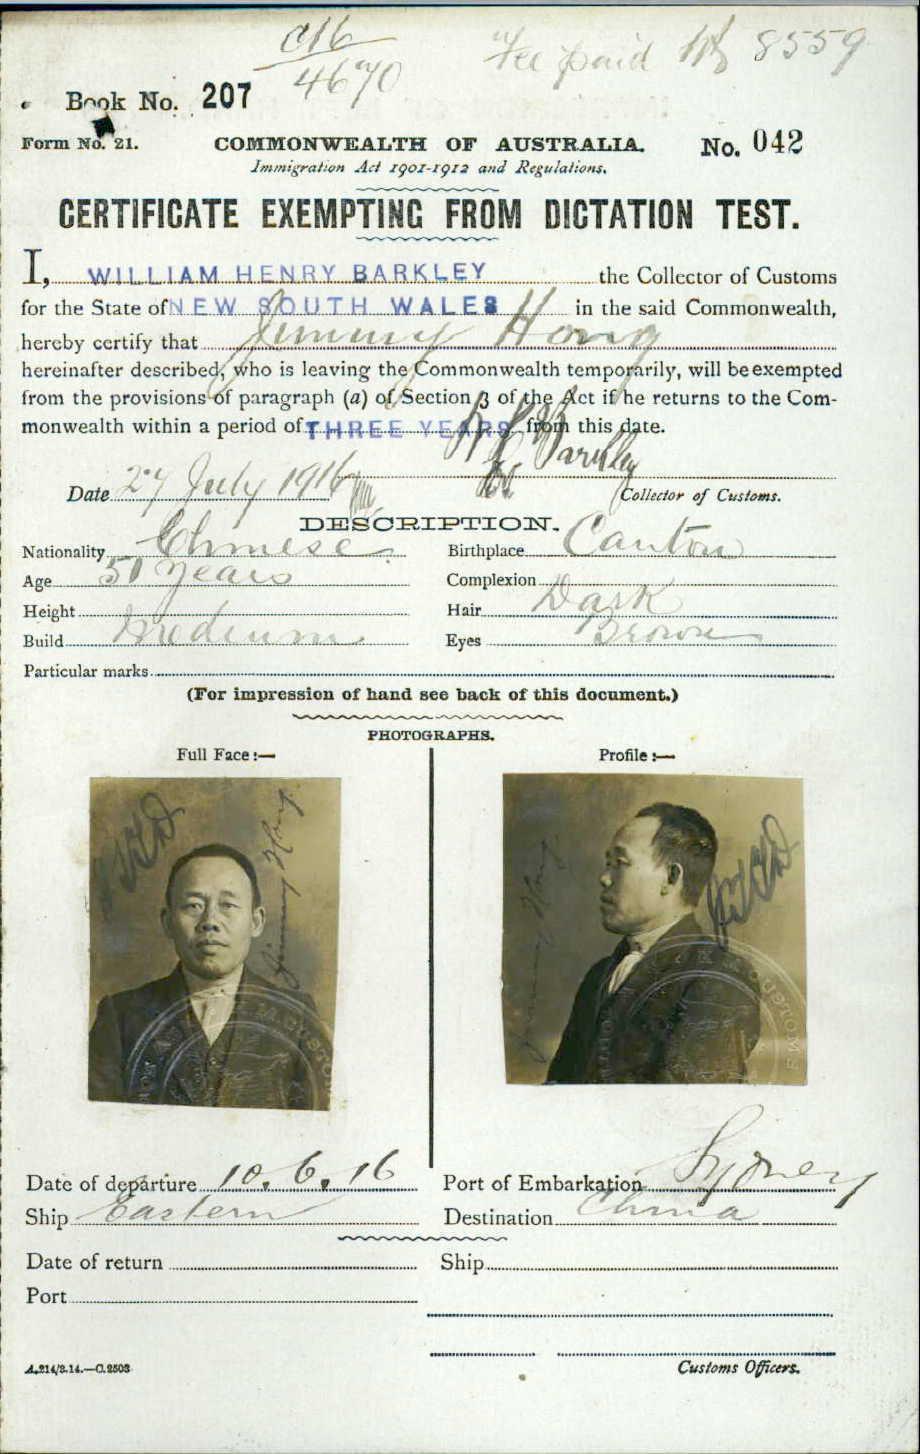 C16
4670
Fee paid 8559
Book No. 207
Form No. 21. COMMONWEALTH OF AUSTRALIA. No. 042
Immigration Act 1901-1912 and Regulations.
CERTIFICATE EXEMPTING FROM DICTATION TEST.
I, WILLIAM HENRY BARKLEY the Collector of Customs
for the State of NEW SOUTH WALES in the said Commonwealth,
hereby certify that Jimmy Hong
hereinafter described, who is leaving the Commonwealth temporarily, will be exempted
from the provisions of paragraph (a) of Section 3 of the Act if he returns to the Com-
monwealth within a period of THREE YEARS from this date.
W H Barkley
Date 27 July 1916 Collector of Customs.
DESCRIPTION.
Nationality Chinese Birthplace Canton
Age 51 years Complexion
Height Hair Dark
Build Medium Eyes Brown
Particular marks
(For impression of hand see back of this document.)
PHOTOGRAPHS.
Full Face:— Profile:—
Jimmy Hong
Jimmy Hong
Date of departure 10.6.16 Port of Embarkation Sydney
Ship Eastern Destination China
Date of return Ship
Port
A.214/3.14.—C.2503 Customs Officers.